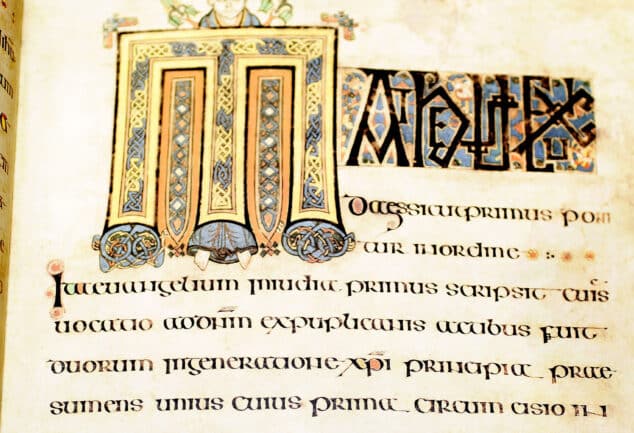 MATHEUS EX
daessicutprimus pon
itur inordine
Ita euangelium iniudia primus scripsit cuis
uocatio addnm expuplicanis actibus fuit
duorum ingeneratione xpi principia prae
sumens unius cuius prima circum cisio in